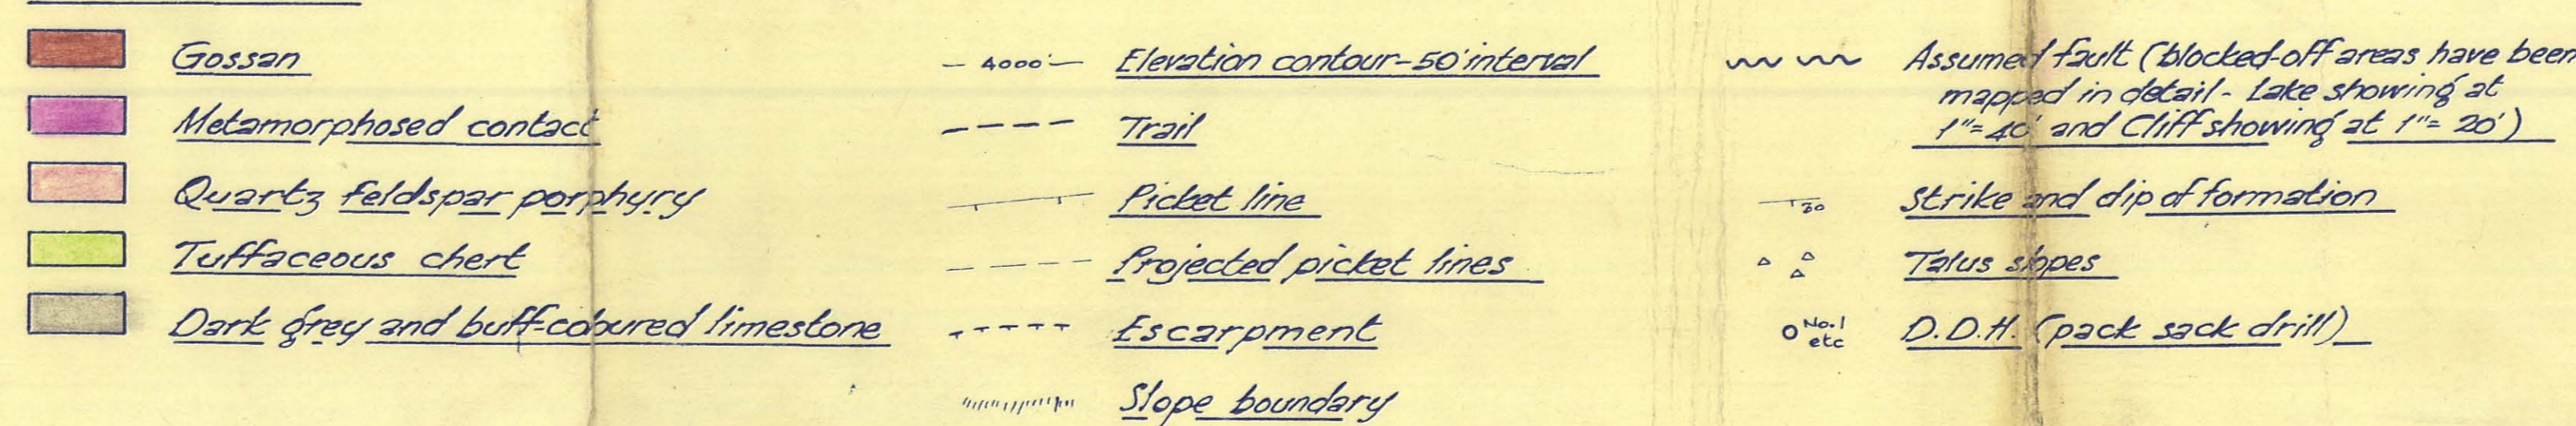 Gossan
Metamorphosed contact
Quartz feldspar porphyry
Tuffaceous chert
Dark grey and buff-coloured limestone
4000'
Elevation contour-50' interval
Trail
Picket line
Projected picket lines
Escarpment
Slope boundary
Assumed fault (blocked-off areas have been
mapped in detail - Lake showing at
1"= 40' and Cliff showing at 1"= 20')
Strike and dip of formation
Talus slopes
No.1
etc
D.D.H. (pack sack drill)